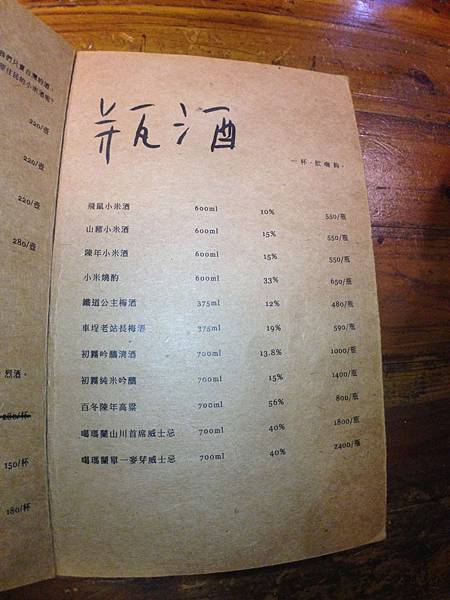 我們只賣台灣的酒。
原住民的小米酒呢?
220/壺
220/壺
220/壺
280/壺
烈酒。
280/杯
150/杯
180/杯
瓶酒
一杯.飲嘸夠。
飛鼠小米酒 600ml 10% 550/瓶
山豬小米酒 600ml 15% 550/瓶
陳年小米酒 600ml 15% 550/瓶
小米燒酌 600ml 33% 650/瓶
鐵道公主梅酒 375ml 12% 480/瓶
車埕老站長梅酒 375ml 19% 590/瓶
初霧吟釀清酒 700ml 13.8% 1000/瓶
初霧純米吟釀 700ml 15% 1400/瓶
百冬陳年高粱 700ml 56% 800/瓶
噶瑪蘭山川首席威士忌 700ml 40% 1800/瓶
噶瑪蘭單一麥芽威士忌 700ml 40% 2400/瓶